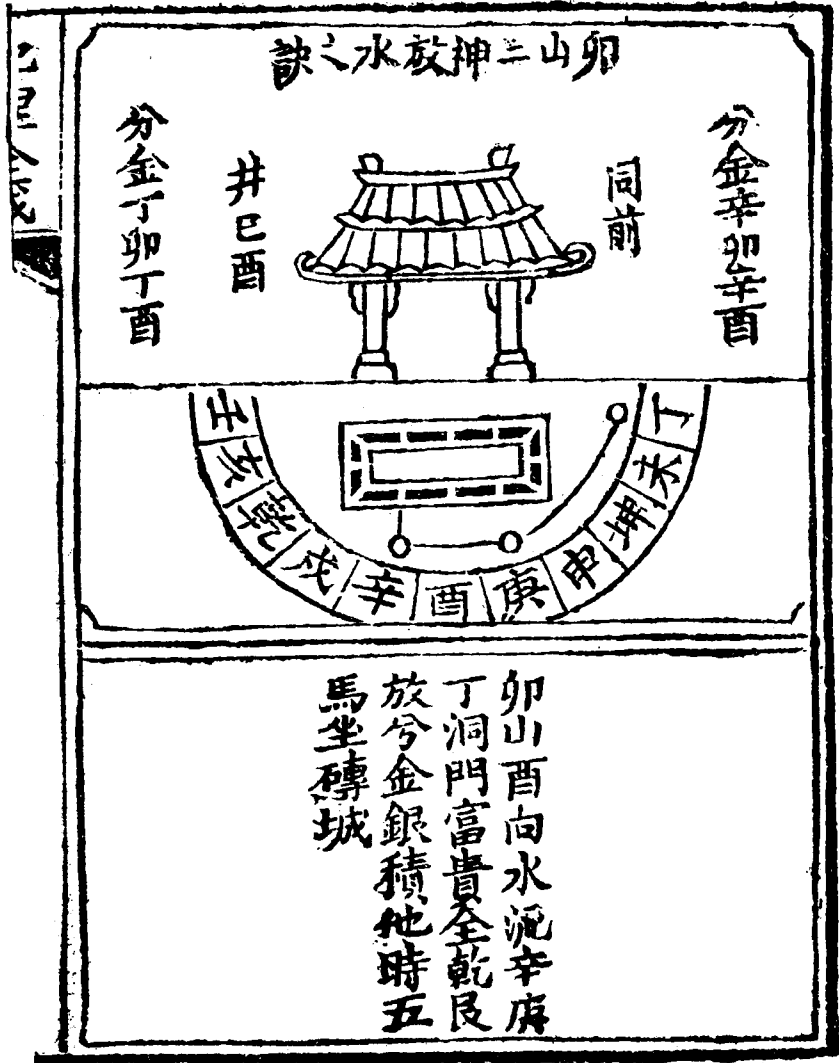 卯山二神放水之訣
分金辛卯辛酉
同前
井巳酉
分金丁卯丁酉
丁未坤申庚酉辛戌乾亥壬
卯山酉向水流辛庚
丁洞門富貴全乾艮
放兮金銀積他時五
馬坐磚城